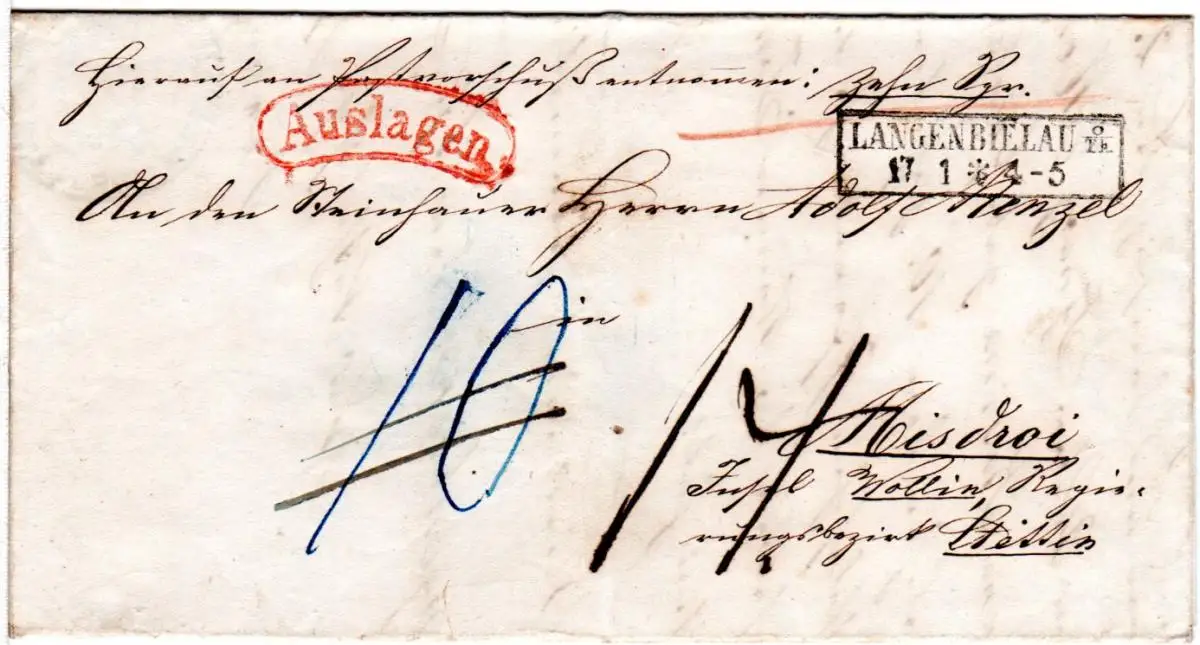 Hierauf an Postvorschuß entnommen: zehn Sgr.
Auslagen.
LANGENBIELAU
17 1 * 4-5
An den Steinhauer Herrn Adolf Menzel
in
10
14
Misdroi
Insel Wollin, Regie-
rungsbezirk Stettin